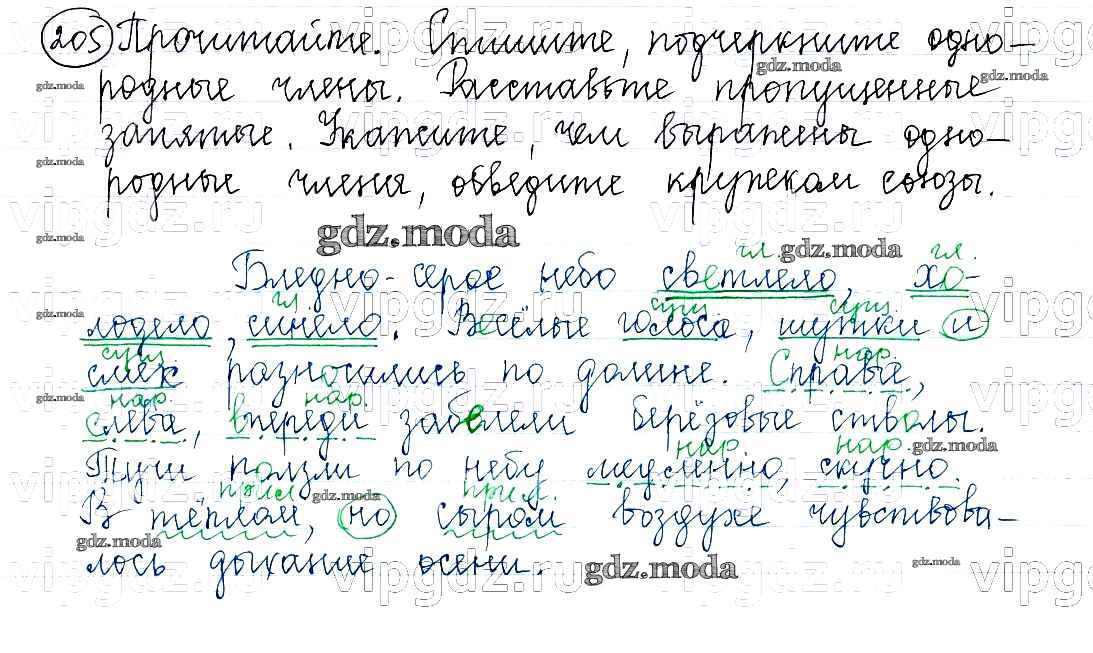 205 Прочитайте. Спишите, подчеркните одно-
родные члены. Расставьте пропущенные
запятые. Укажите, чем выражены одно-
родные члены, обведите кружком союзы.
gdz.moda
гл. гл.
Бледно-серое небо светлело, хо-
гл. сущ. сущ.
лодело, синело. Весёлые голоса, шутки и
сущ. нар.
смех разносились по долине. Справа,
нар. нар.
слева, впереди забелели берёзовые стволы.
нар. нар.
Тучи ползли по небу медленно, скучно.
прил. прил.
В тёплом, но сыром воздухе чувствова-
лось дыхание осени.
gdz.moda